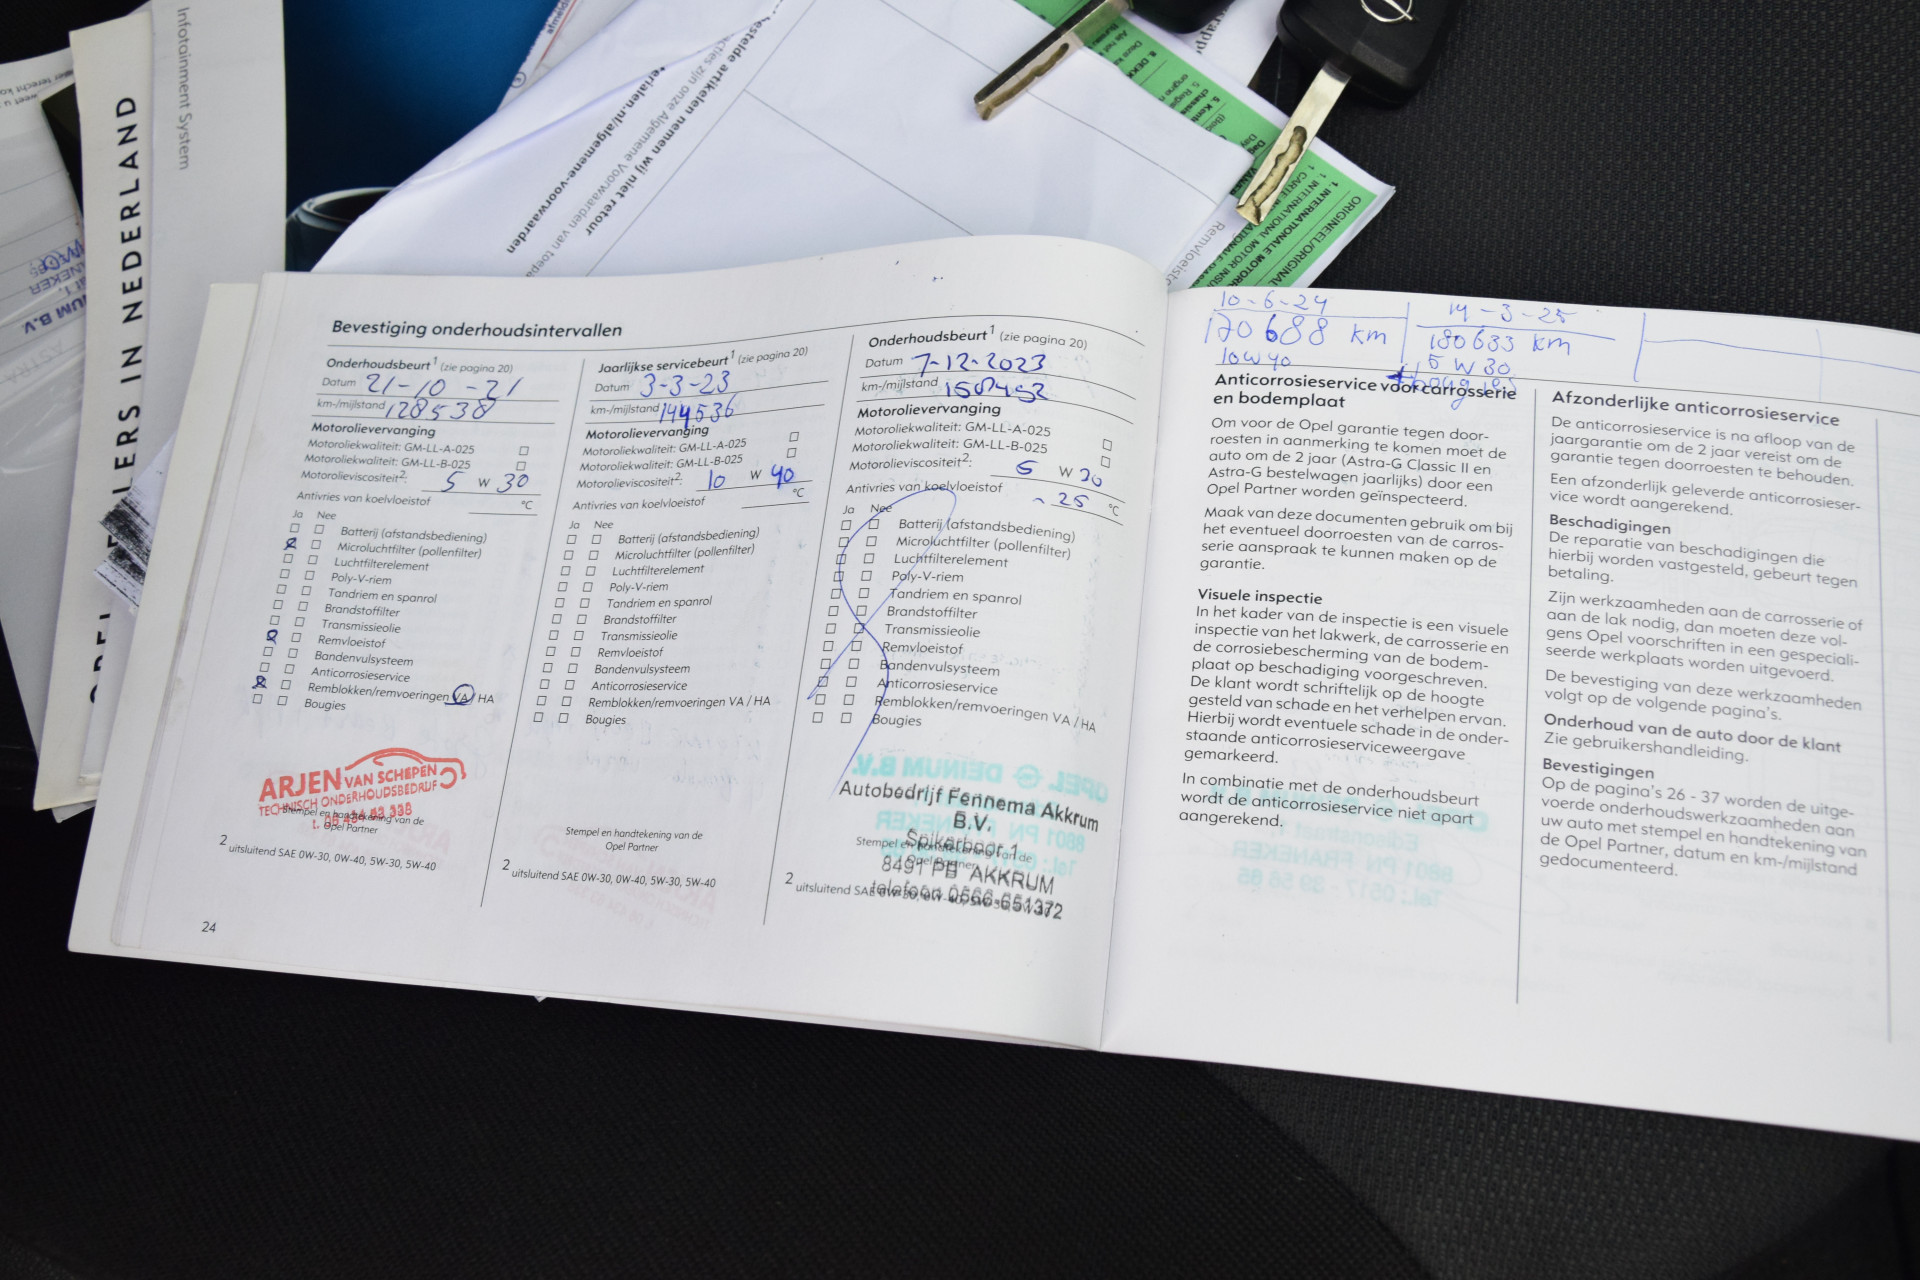 Infotainment System
OPEL DEALERS IN NEDERLAND
bestelde artikelen nemen wij niet retour
zijn onze Algemene Voorwaarden van
materialen.nl/algemene-voorwaarden
Remvloeistof
ORIGINEEL/ORIGINAL
1. INTERNATIONALE MOTOR
1. INTERNATIONAL MOTOR INSU
Bevestiging onderhoudsintervallen
Onderhoudsbeurt1 (zie pagina 20)
Datum 21-10-21
km-/mijlstand 128538
Motorolievervanging
Motoroliekwaliteit: GM-LL-A-025 ☐
Motoroliekwaliteit: GM-LL-B-025 ☐
Motorolieviscositeit2: 5 W 30
Antivries van koelvloeistof °C
Ja Nee
Batterij (afstandsbediening)
Microluchtfilter (pollenfilter)
Luchtfilterelement
Poly-V-riem
Tandriem en spanrol
Brandstoffilter
Transmissieolie
Remvloeistof
Bandenvulsysteem
Anticorrosieservice
Remblokken/remvoeringen VA / HA
Bougies
ARJEN VAN SCHEPEN
TECHNISCH ONDERHOUDSBEDRIJF
Stempel en handtekening van de
Opel Partner
2 uitsluitend SAE 0W-30, 0W-40, 5W-30, 5W-40
24
Jaarlijkse servicebeurt1 (zie pagina 20)
Datum 3-3-23
km-/mijlstand 144536
Motorolievervanging
Motoroliekwaliteit: GM-LL-A-025 ☐
Motoroliekwaliteit: GM-LL-B-025 ☐
Motorolieviscositeit2: 10 W 40
Antivries van koelvloeistof °C
Ja Nee
Batterij (afstandsbediening)
Microluchtfilter (pollenfilter)
Luchtfilterelement
Poly-V-riem
Tandriem en spanrol
Brandstoffilter
Transmissieolie
Remvloeistof
Bandenvulsysteem
Anticorrosieservice
Remblokken/remvoeringen VA / HA
Bougies
Stempel en handtekening van de
Opel Partner
2 uitsluitend SAE 0W-30, 0W-40, 5W-30, 5W-40
Onderhoudsbeurt1 (zie pagina 20)
Datum 7-12-2023
km-/mijlstand
Motorolievervanging
Motoroliekwaliteit: GM-LL-A-025 ☐
Motoroliekwaliteit: GM-LL-B-025 ☐
Motorolieviscositeit2: 5 W 30
Antivries van koelvloeistof - 25 °C
Ja Nee
Batterij (afstandsbediening)
Microluchtfilter (pollenfilter)
Luchtfilterelement
Poly-V-riem
Tandriem en spanrol
Brandstoffilter
Transmissieolie
Remvloeistof
Bandenvulsysteem
Anticorrosieservice
Remblokken/remvoeringen VA / HA
Bougies
OPEL DEINUM B.V.
Autobedrijf Fennema Akkrum
B.V.
Spikerboor 1
Stempel en handtekening van de
Opel Partner
8491 PB AKKRUM
telefoon 0566-651372
2 uitsluitend SAE 0W-30, 0W-40, 5W-30, 5W-40
10-6-24
170688 km
10W40
14-3-25
180633 km
5 W 30
+ bougies
Anticorrosieservice voor carrosserie
en bodemplaat
Om voor de Opel garantie tegen door-
roesten in aanmerking te komen moet de
auto om de 2 jaar (Astra-G Classic II en
Astra-G bestelwagen jaarlijks) door een
Opel Partner worden geïnspecteerd.
Maak van deze documenten gebruik om bij
het eventueel doorroesten van de carros-
serie aanspraak te kunnen maken op de
garantie.
Visuele inspectie
In het kader van de inspectie is een visuele
inspectie van het lakwerk, de carrosserie en
de corrosiebescherming van de bodem-
plaat op beschadiging voorgeschreven.
De klant wordt schriftelijk op de hoogte
gesteld van schade en het verhelpen ervan.
Hierbij wordt eventuele schade in de onder-
staande anticorrosieserviceweergave
gemarkeerd.
In combinatie met de onderhoudsbeurt
wordt de anticorrosieservice niet apart
aangerekend.
Afzonderlijke anticorrosieservice
De anticorrosieservice is na afloop van de
jaargarantie om de 2 jaar vereist om de
garantie tegen doorroesten te behouden.
Een afzonderlijk geleverde anticorrosieser-
vice wordt aangerekend.
Beschadigingen
De reparatie van beschadigingen die
hierbij worden vastgesteld, gebeurt tegen
betaling.
Zijn werkzaamheden aan de carrosserie of
aan de lak nodig, dan moeten deze vol-
gens Opel voorschriften in een gespeciali-
seerde werkplaats worden uitgevoerd.
De bevestiging van deze werkzaamheden
volgt op de volgende pagina's.
Onderhoud van de auto door de klant
Zie gebruikershandleiding.
Bevestigingen
Op de pagina's 26 - 37 worden de uitge-
voerde onderhoudswerkzaamheden aan
uw auto met stempel en handtekening van
de Opel Partner, datum en km-/mijlstand
gedocumenteerd.